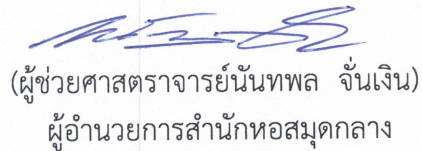 (ผู้ช่วยศาสตราจารย์นันทพล จั่นเงิน)
ผู้อำนวยการสำนักหอสมุดกลาง